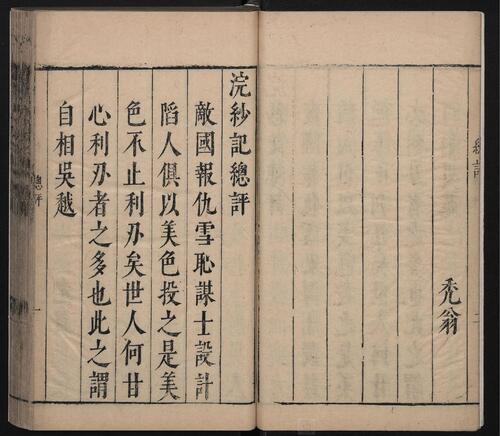 禿翁
浣紗記總評
敵國報仇雪恥謀士設計
陷人俱以美色投之是美
色不止利刃矣世人何甘
心利刃者之多也此之謂
自相吳越
總評
一